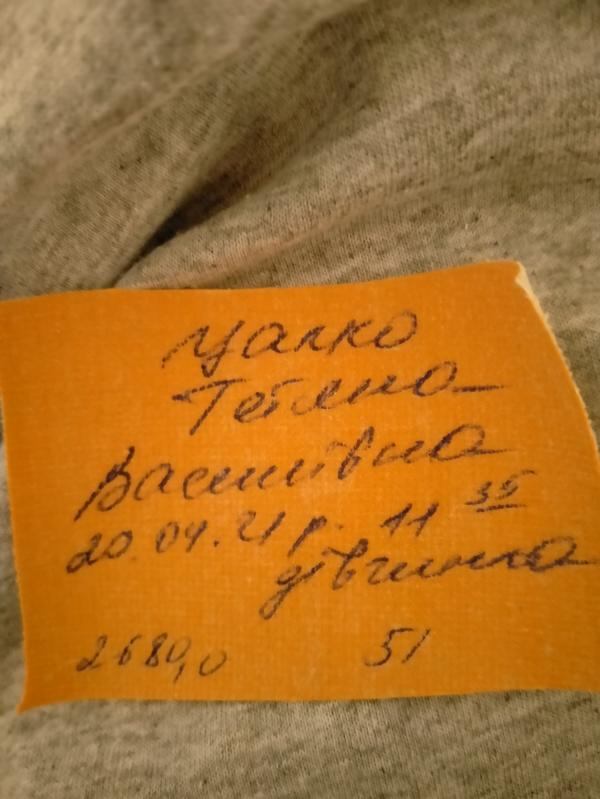 Цалко
Тетяна
Василівна
20.04.21 р. 11 35
дівчинка
2680,0 51